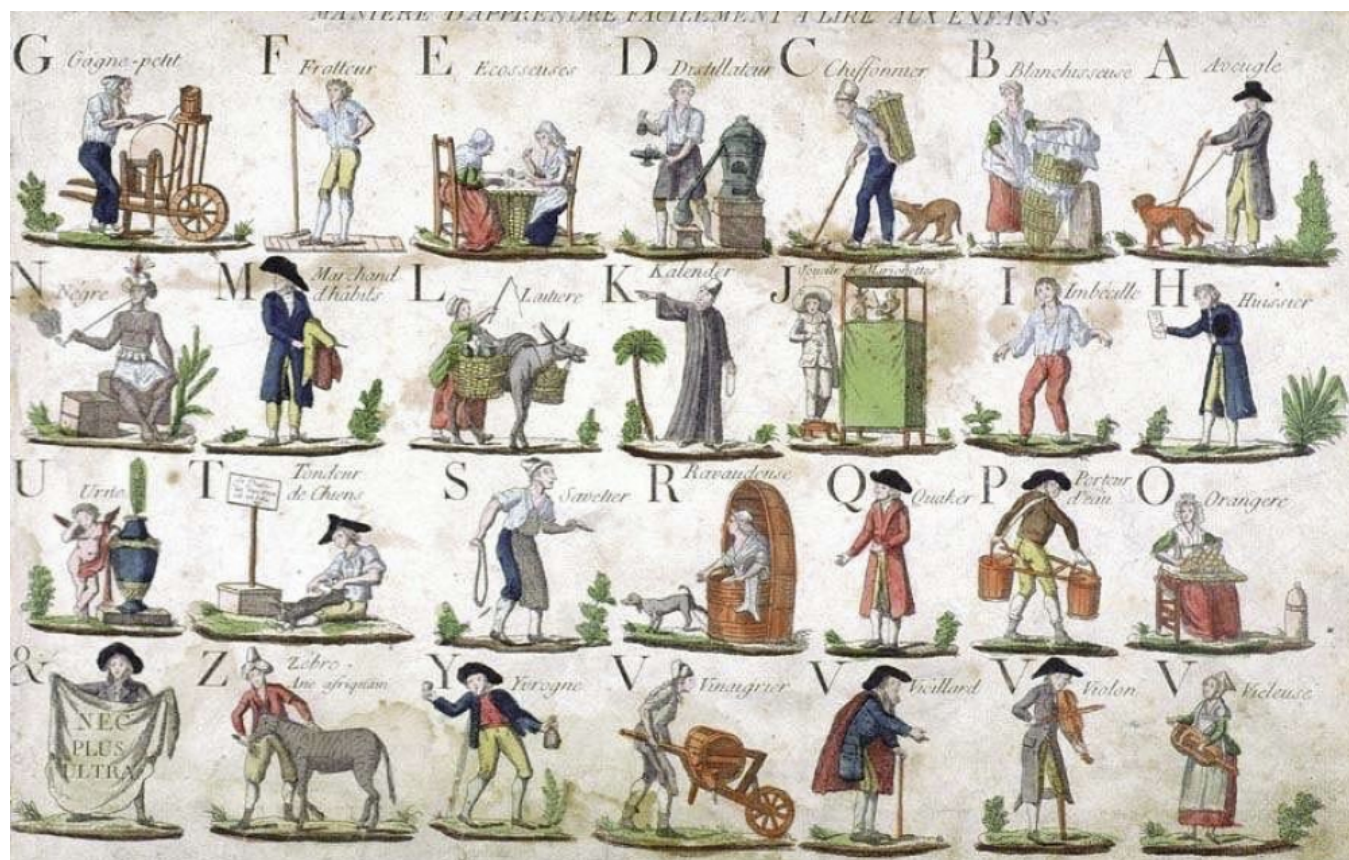 MANIERE D'APPRENDRE FACILEMENT A LIRE AUX ENFANS.
G Gagne-petit
F Frotteur
E Ecosseuses
D Distillateur
C Chiffonnier
B Blanchisseuse
A Aveugle
N Négre
M Marchand
d'habits
L Laitiere
K Kalender
J Joueur de Marionettes
I Imbécille
H Huissier
U Urne
T Tondeur
de Chiens
S Savetier
R Ravaudeuse
Q Quaker
P Porteur
d'eau
O Orangere
&
NEC
PLUS
ULTRA
Z Zébre
Ane afriquain
Y Yvrogne
V Vinaigrier
V Vieillard
V Violon
V Vieleuse